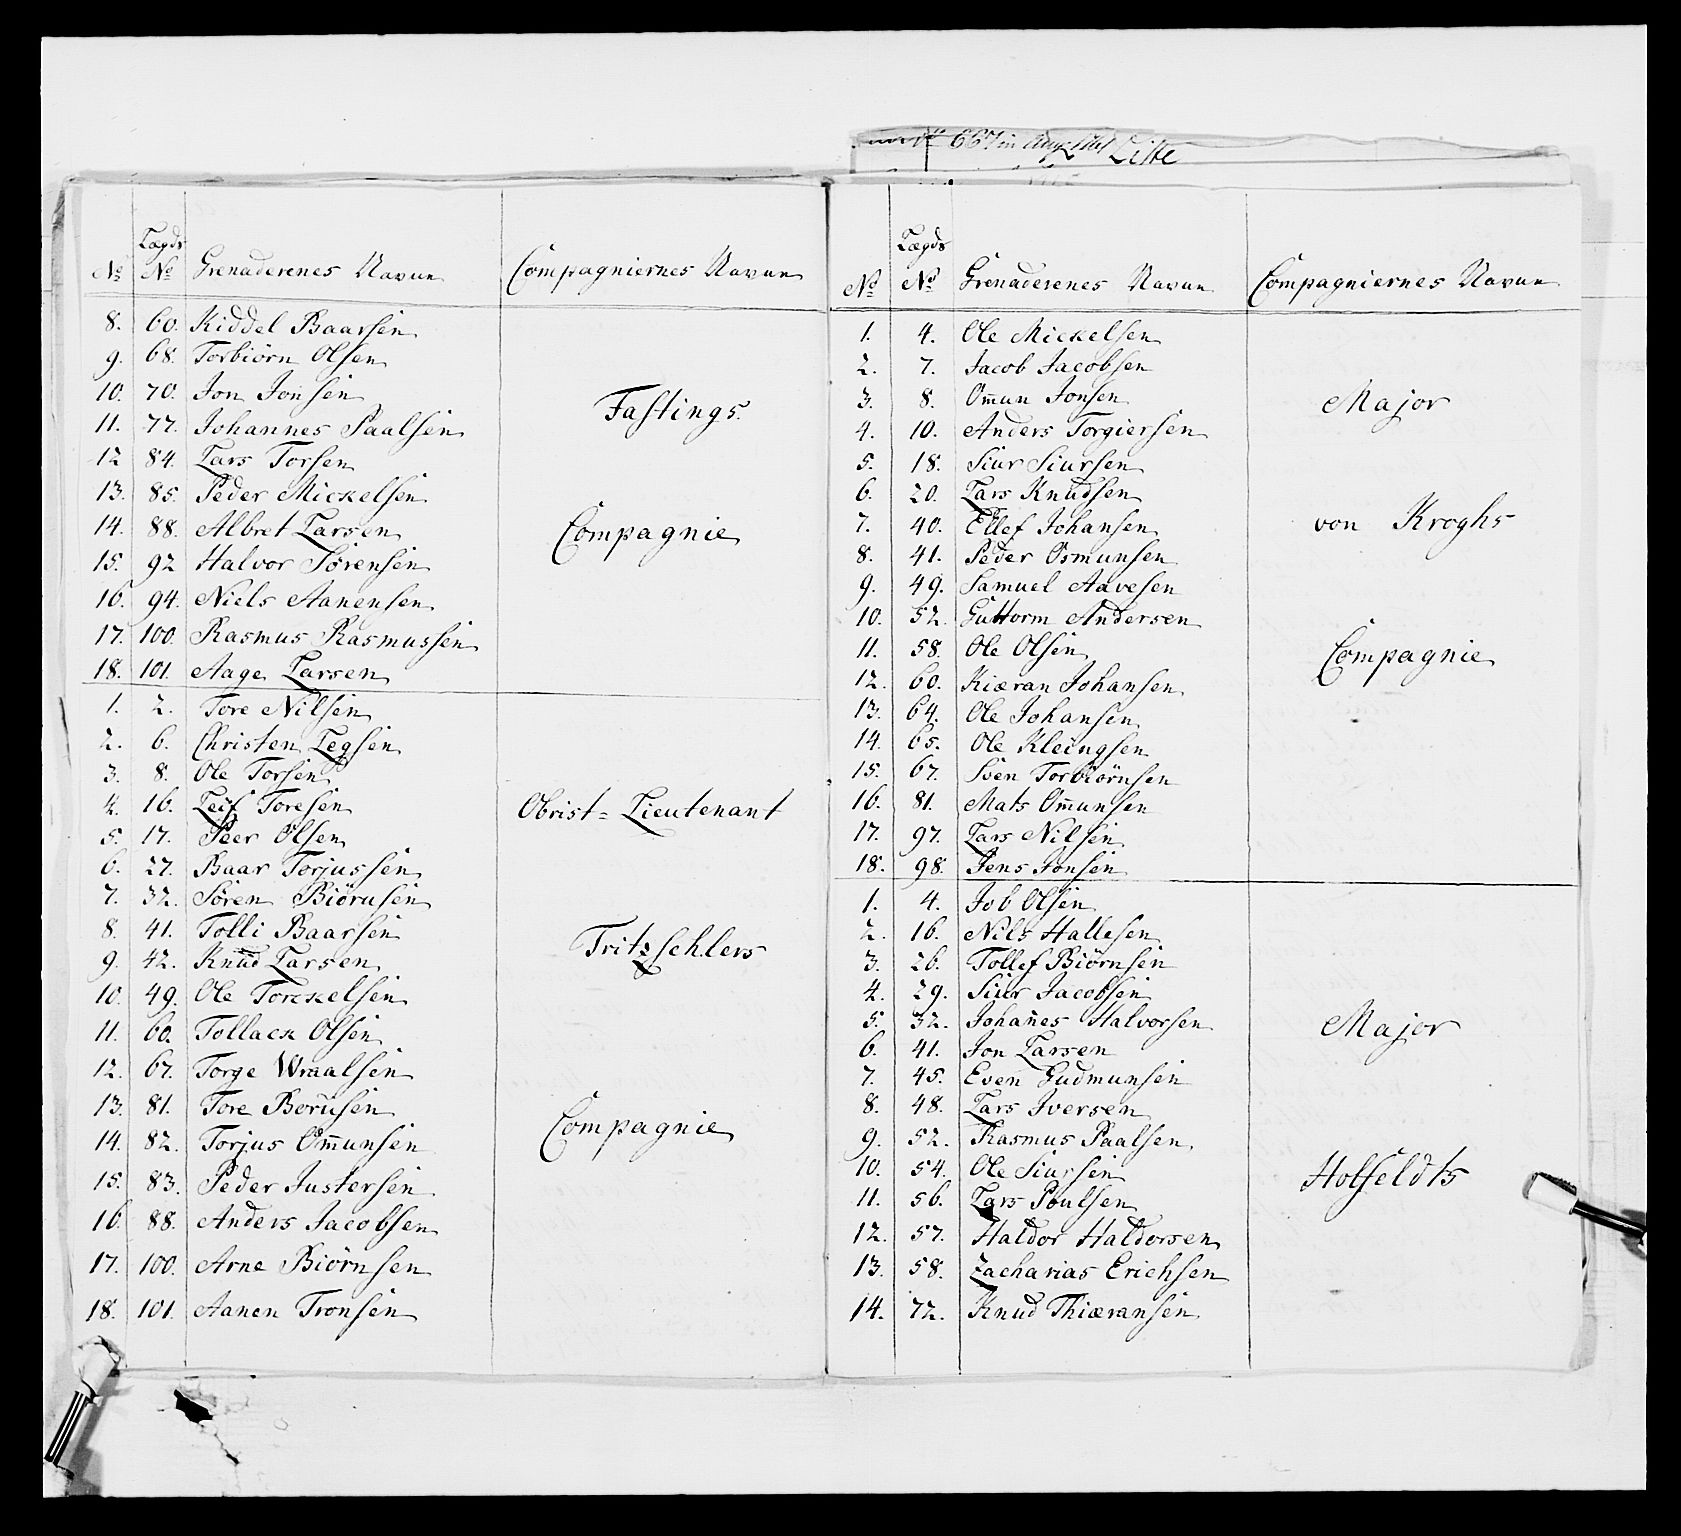 667 in Aug 1761 Liste
No Lægds No Grenaderenes Navne Compagniernes Navne
8. 60. Kiddel Baarsen
9. 68. Torbiörn Olsen
10. 70. Jon Jonsen
11. 77. Johannes Paalsen
12 84. Lars Torsen
13. 85. Peder Mickelsen
14. 88. Albret Larsen
15. 92 Halvor Sörensen
16. 94. Niels Aanensen
17. 100. Rasmus Rasmussen
18. 101. Aage Larsen
Fastings.
Compagnie
1. 2. Tore Nilsen
2. 6. Christen Legsen
3. 8. Ole Torsen
4. 16. Leif Toresen
5. 17. Peer Olsen
6. 27. Baar Torjussen
7. 32. Sören Biörnsen
8. 41. Tolli Baarsen
9. 42. Knud Larsen
10. 49. Ole Torckelsen
11. 60. Tollack Olsen
12. 67. Torge Wraalsen
13. 81. Tore Berusen
14. 82. Torjus Om̄unsen
15. 83. Peder Justersen
16. 88. Anders Jacobsen
17. 100. Arne Biörnsen
18. 101. Aanen Tronsen
Obrist-Lieutenant
Tritzschlers
Compagnie
No Lægds No Grenaderenes Navne Compagniernes Navne
1. 4. Ole Mickelsen
2. 7. Jacob Jacobsen
3. 8. Om̄un Jonsen
4. 10. Anders Torgiersen
5. 18. Siur Siursen
6. 20. Lars Knudsen
7. 40. Ellef Johansen
8. 41. Peder Osmunsen
9. 49. Samuel Aavesen
10. 52. Guttorm Andersen
11. 58. Ole Olsen
12. 60. Kiæran Johansen
13. 64. Ole Johansen
14. 65. Ole Kleingsen
15. 67. Sven Torbiörnsen
16. 81. Mats Om̄unsen
17. 97. Lars Nilsen
18. 98. Jens Jonsen
Major
von Kroghs
Compagnie
1. 4. Job Olsen
2. 16. Nils Hallesen
3. 26. Tollef Biörnsen
4. 29. Siur Jacobsen
5. 32. Johan̄es Halvorsen
6. 41. Jon Larsen
7. 45. Even Gudmunsen
8. 48. Lars Iversen
9. 52. Rasmus Paalsen
10. 54. Ole Siursen
11. 56. Lars Poulsen
12. 57. Haldor Haldorsen
13. 58. Zacharias Erichsen
14. 72. Knud Thiæransen
Major
Holfeldts